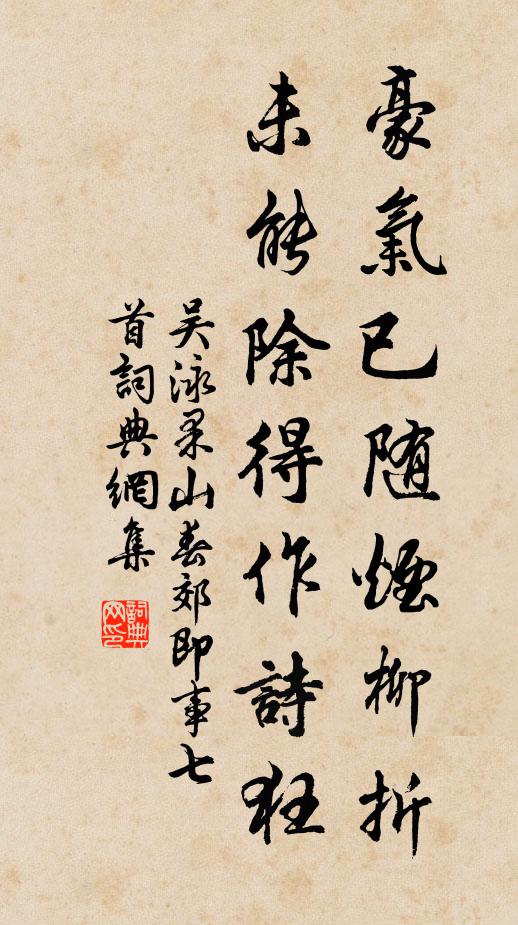 豪氣已随煙柳折
未能除得作詩狂
吴泳果山春郊即事七
首詞典網集
詞典网印